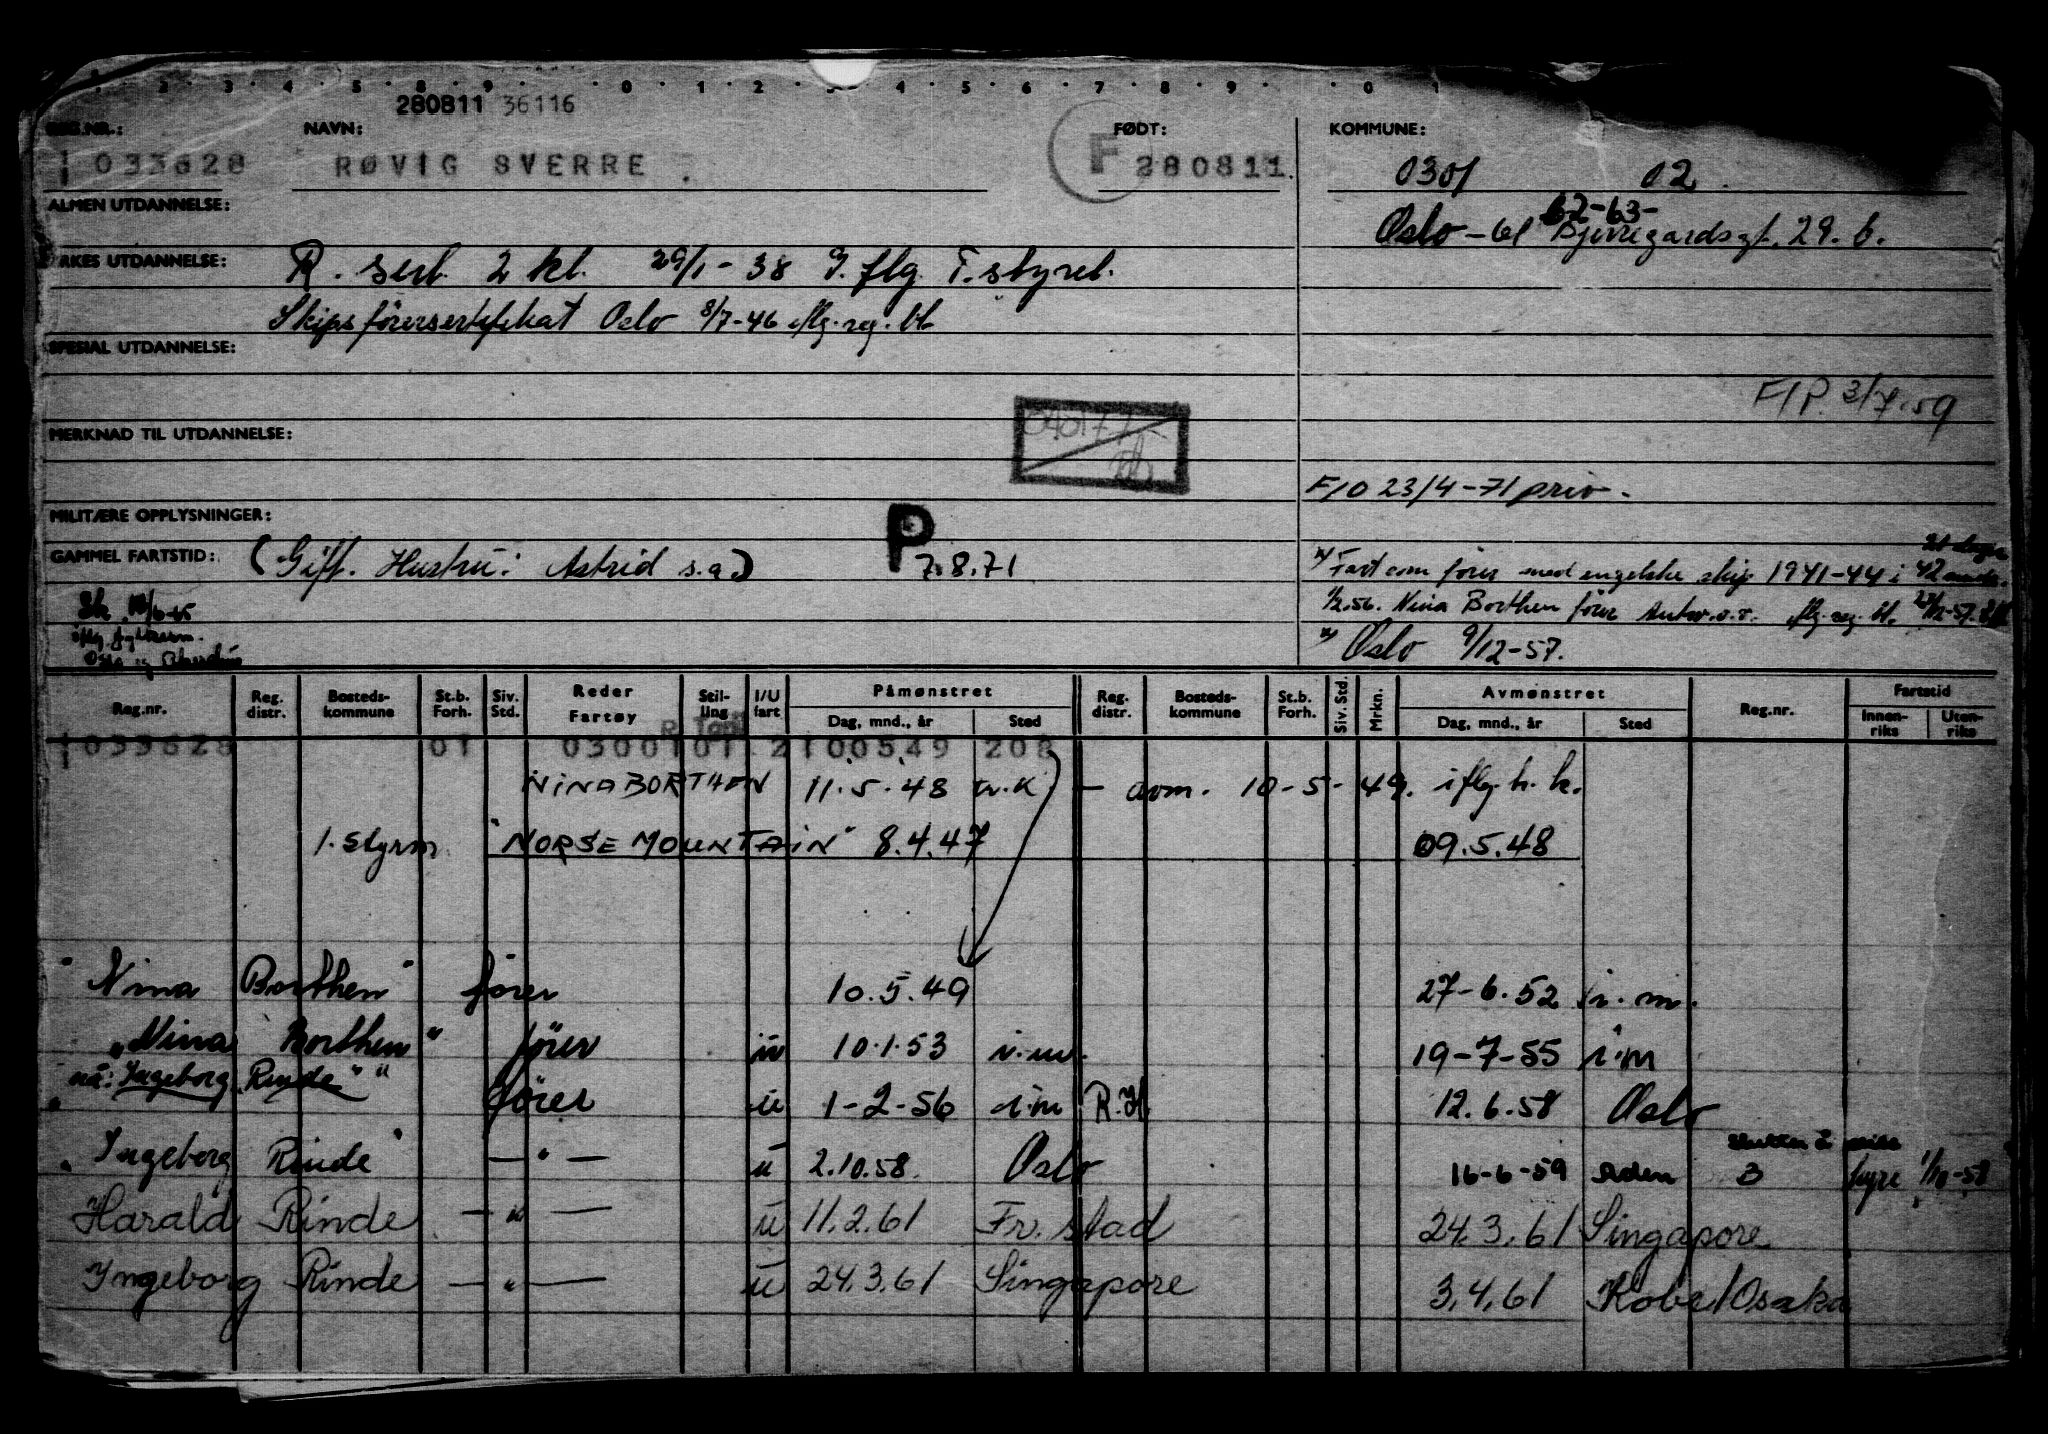 280811 36116
REG.NR.: NAVN: FØDT: KOMMUNE:
033628 RØVIG SVERRE F 280811. 0301 02
ALMEN UTDANNELSE: 62-63-
Oslo-61 Bjerregardsgt. 29.b.
YRKES UTDANNELSE: R. sert. 2 kl. 29/1-38 I.flg. T.styret.
Skipsförersertifikat Oslo 8/7-46 iflg. reg. bl.
SPESIAL UTDANNELSE:
F/P. 3/7.59
MERKNAD TIL UTDANNELSE:
F/O 23/4-71 priv.
MILITÆRE OPPLYSNINGER:
GAMMEL FARTSTID: (Gift. Hustru: Astrid s.a.) P 7.8.71
x) Fart som förer med engelske skip 1941-44 i 42 mndr.
1/2.56. Nina Borthen förer iflg. reg. bl.
x) Oslo 9/12-57.
Reg.nr. Reg. distr. Bosteds-kommune St.b. Forh. Siv. Std. Reder Fartøy Stil-ling I/U fart Påmønstret Dag, mnd., år Sted Reg. distr. Bosteds-kommune St.b. Forh. Siv. Std. Mrkn. Avmønstret Dag, mnd., år Sted Reg.nr. Fartstid Innen-riks Uten-riks
033628 01 0300101 2100549 208
NINA BORTHEN 11.5.48 - avm. 10-5-49. iflg. h.k.
1. styrm "NORSE MOUNTAIN" 8.4.47 09.5.48
"Nina Borthen" förer 10.5.49 27-6.52 i.m.
"Nina Borthen" förer u 10.1.53 i.m. 19-7-55 i.m
nå: Ingeborg Rinde" "
förer u 1-2-56 i.m R.H 12.6.58 Oslo
"Ingeborg Rinde" -"- u 2.10.58. Oslo 16-6-59 Aden 3 hyre 1/10-58
Harald Rinde -"- u 11.2.61 Fr.stad 24.3.61 Singapore
Ingeborg Rinde -"- u 24.3.61 Singapore 3.4.61 Kobe/Osaka